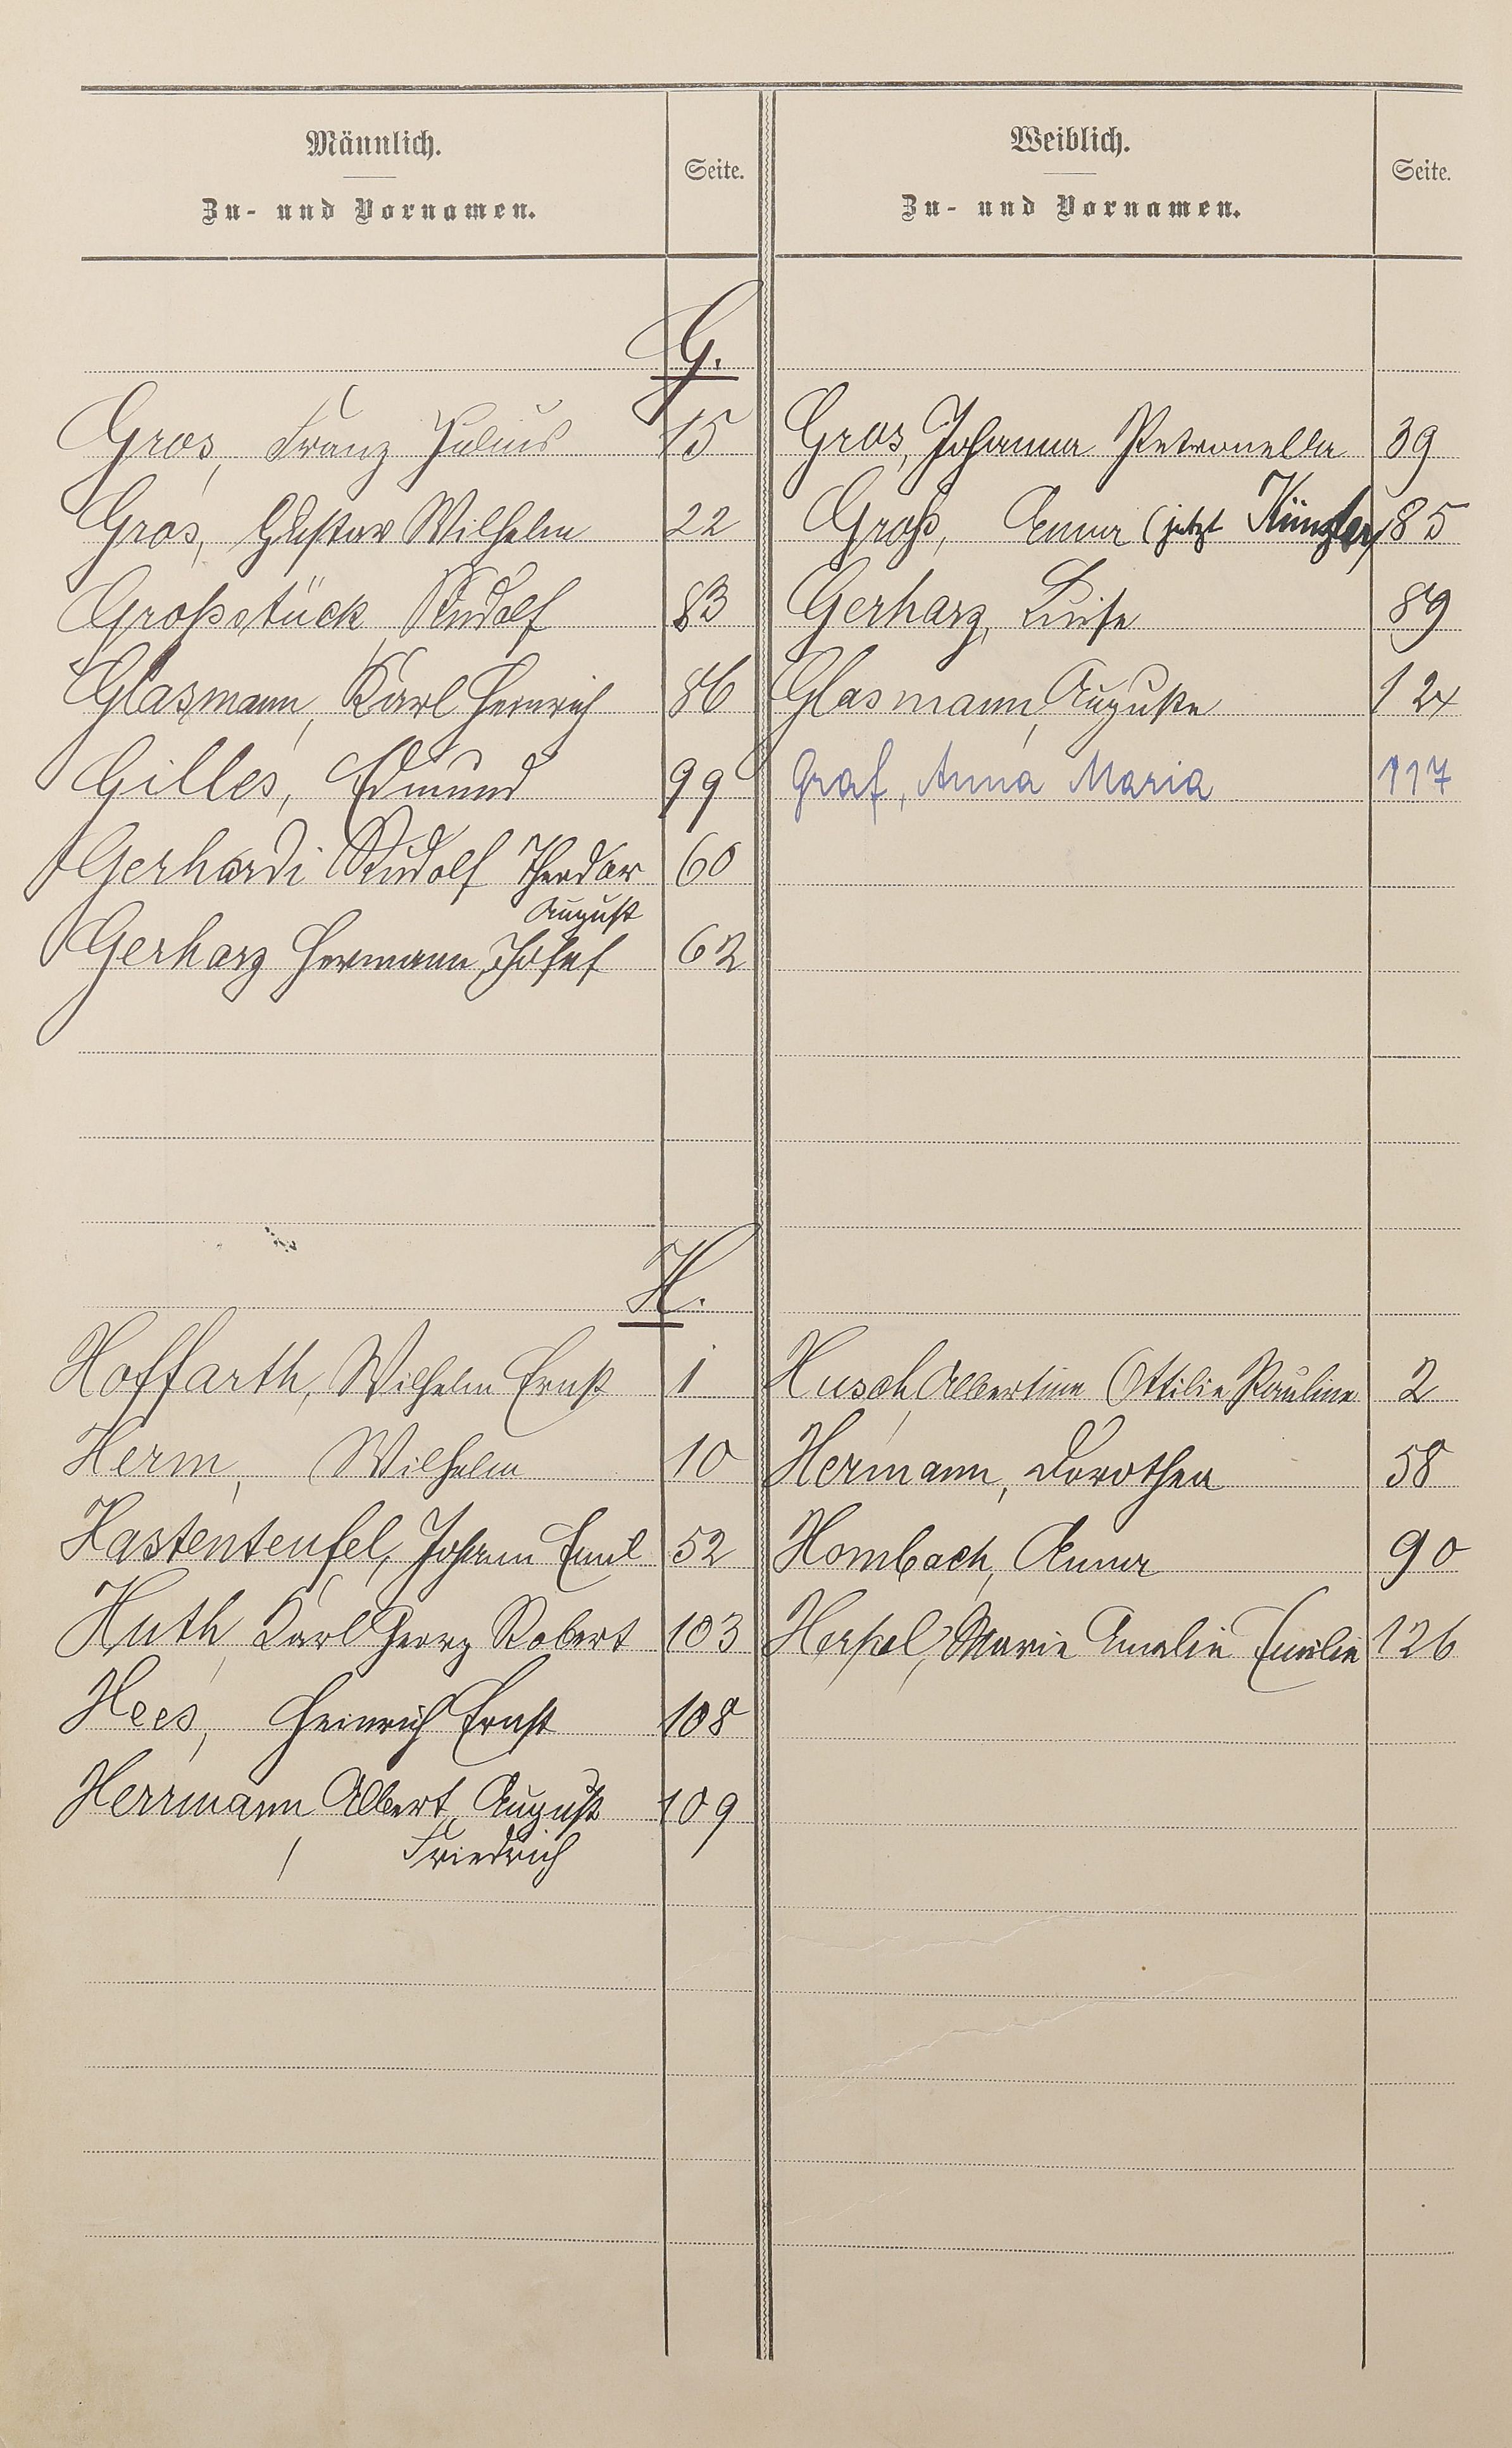 Männlich.
Zu- und Vornamen.
Seite.
Weiblich.
Zu- und Vornamen.
Seite.
G.
Gros, Franz Julius 15 Gros, Johanna Petronella 39
Gros, Gustav Wilhelm 22 Groß, Anna (jetzt Künzler) 85
Großstück Rudolf 83 Gerharz, Luise 89
Glasmann, Karl Heinrich 86 Glasmann, Auguste 124
Gilles, Edmund 99 Graf, Anna Maria 117
Gerhardi Rudolf Theodor 60
August
Gerharz Hermann Josef 62
H.
Hoffarth, Wilhelm Ernst 1 Husch Albertine Ottilie Pauline 2
Herm, Wilhelm 10 Hermann, Dorothea 58
Hastenteufel, Johann Emil 52 Hombach, Anna 90
Huth, Karl Georg Robert 103 Herpel, Marie Amalie Emilie 126
Hees, Heinrich Ernst 108
Herrmann Albert August 109
Friedrich